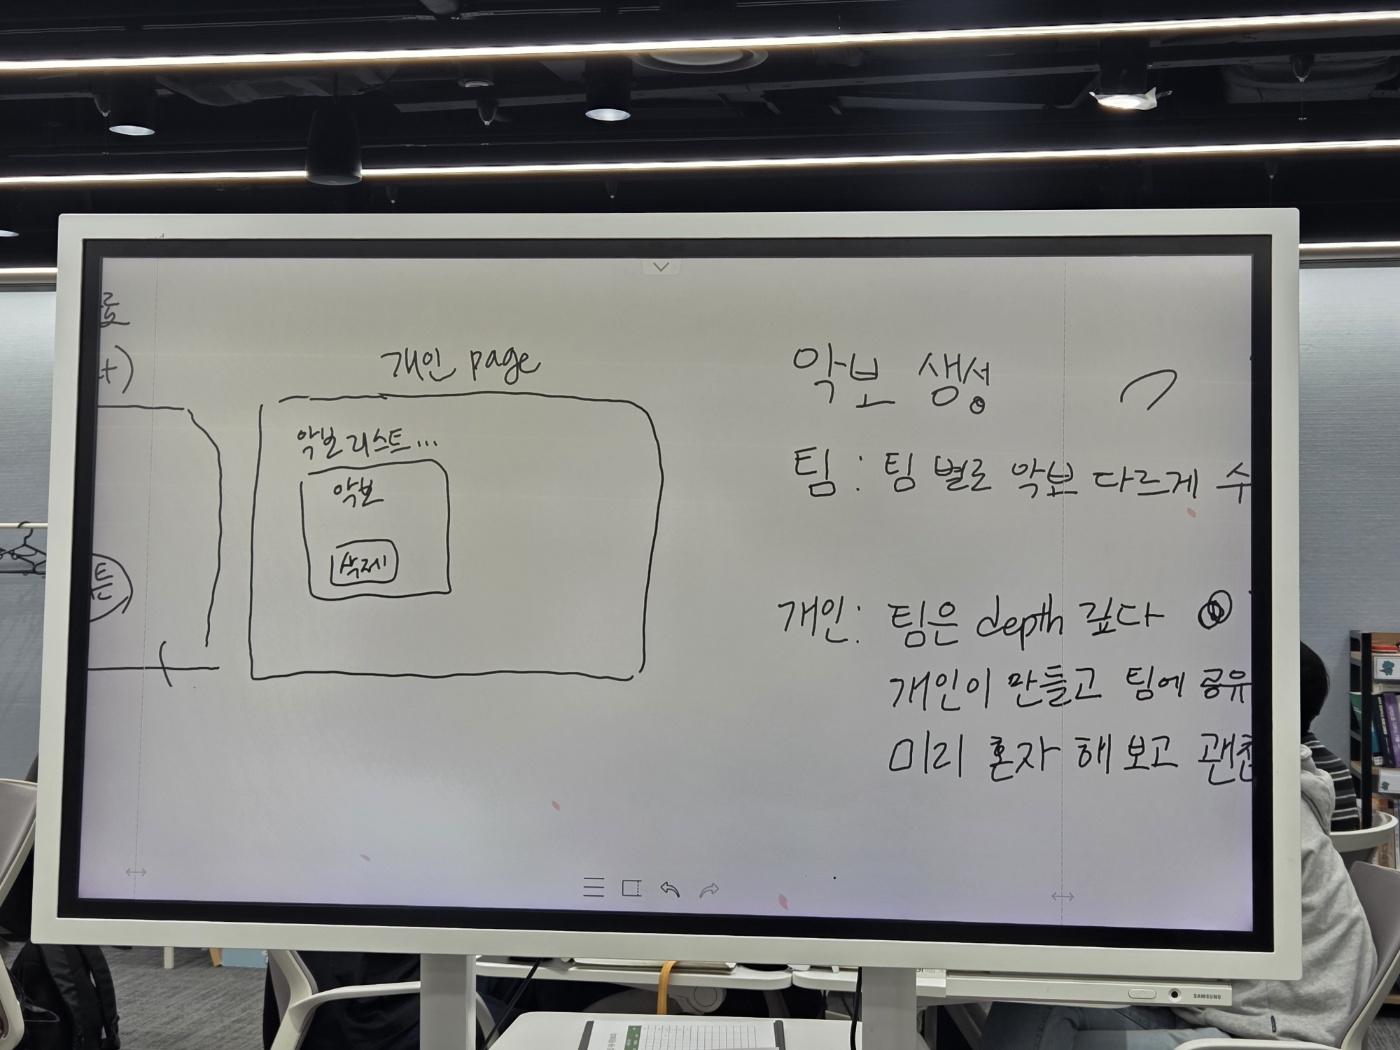 개인 page
악보 리스트...
악보
삭제
악보 생성
팀 : 팀 별로 악보 다르게 수
개인 : 팀은 depth 깊다
개인이 만들고 팀에 공유
미리 혼자 해 보고
SAMSUNG